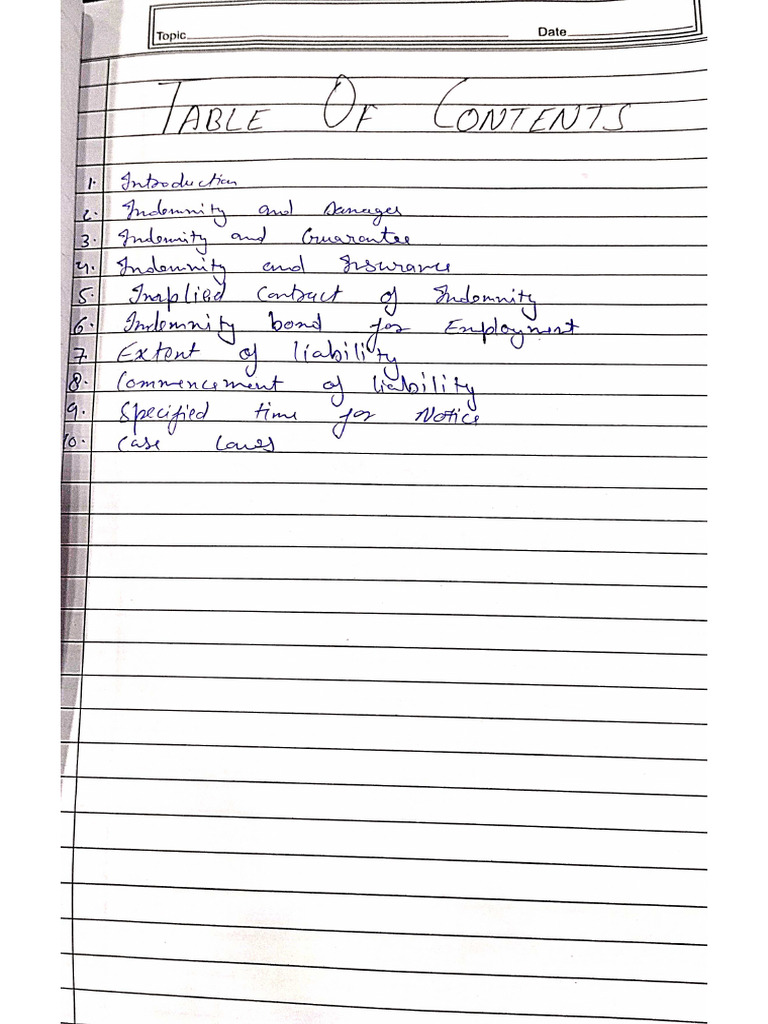 Topic Date
TABLE OF CONTENTS
1. Introduction
2. Indemnity and Damages
3. Indemnity and Guarantee
4. Indemnity and Insurance
5. Implied Contract of Indemnity
6. Indemnity bond for Employment
7. Extent of liability
8. Commencement of liability
9. Specified time for Notice
10. Case Laws